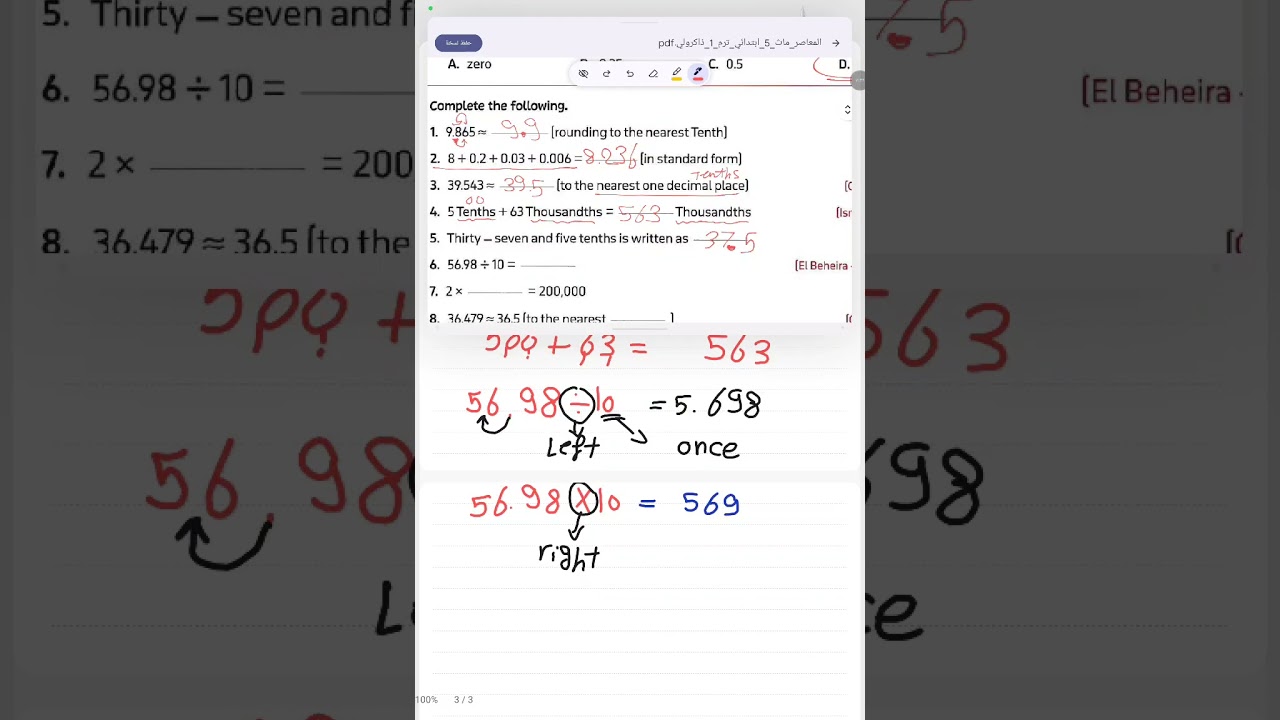 حفظ نسخة
المعاصر_ماث_5_ابتدائي_ترم_1_ذاكرولي.pdf
A. zero
C. 0.5
D.
Complete the following.
1. 9.865 ≈ 9.9 (rounding to the nearest Tenth)
2. 8 + 0.2 + 0.03 + 0.006 = 8.236 (in standard form)
Tenths
3. 39.543 ≈ 39.5 (to the nearest one decimal place)
4. 5 Tenths + 63 Thousandths = 563 Thousandths
5. Thirty – seven and five tenths is written as 37.5
6. 56.98 ÷ 10 = ________ [El Beheira -
7. 2 × ________ = 200,000
8. 36.479 ≈ 36.5 (to the nearest ________ )
500 + 63 = 563
56.98 ÷ 10 = 5.698
Left once
56.98 × 10 = 569
right
100% 3 / 3
5. Thirty – seven and f
6. 56.98 ÷ 10 =
7. 2 × ________ = 200
8. 36.479 ≈ 36.5 (to the
7.5
[El Beheira -
500 +
563
56.98
698
L
ce